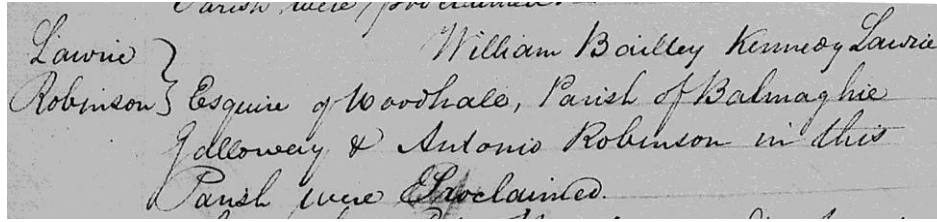 Parish were proclaimed.
Lawrie } William Bailley Kennedy Lawrie
Robinson } Esquire of Woodhall, Parish of Balmaghie
Galloway & Antonio Robinson in this
Parish were Proclaimed.